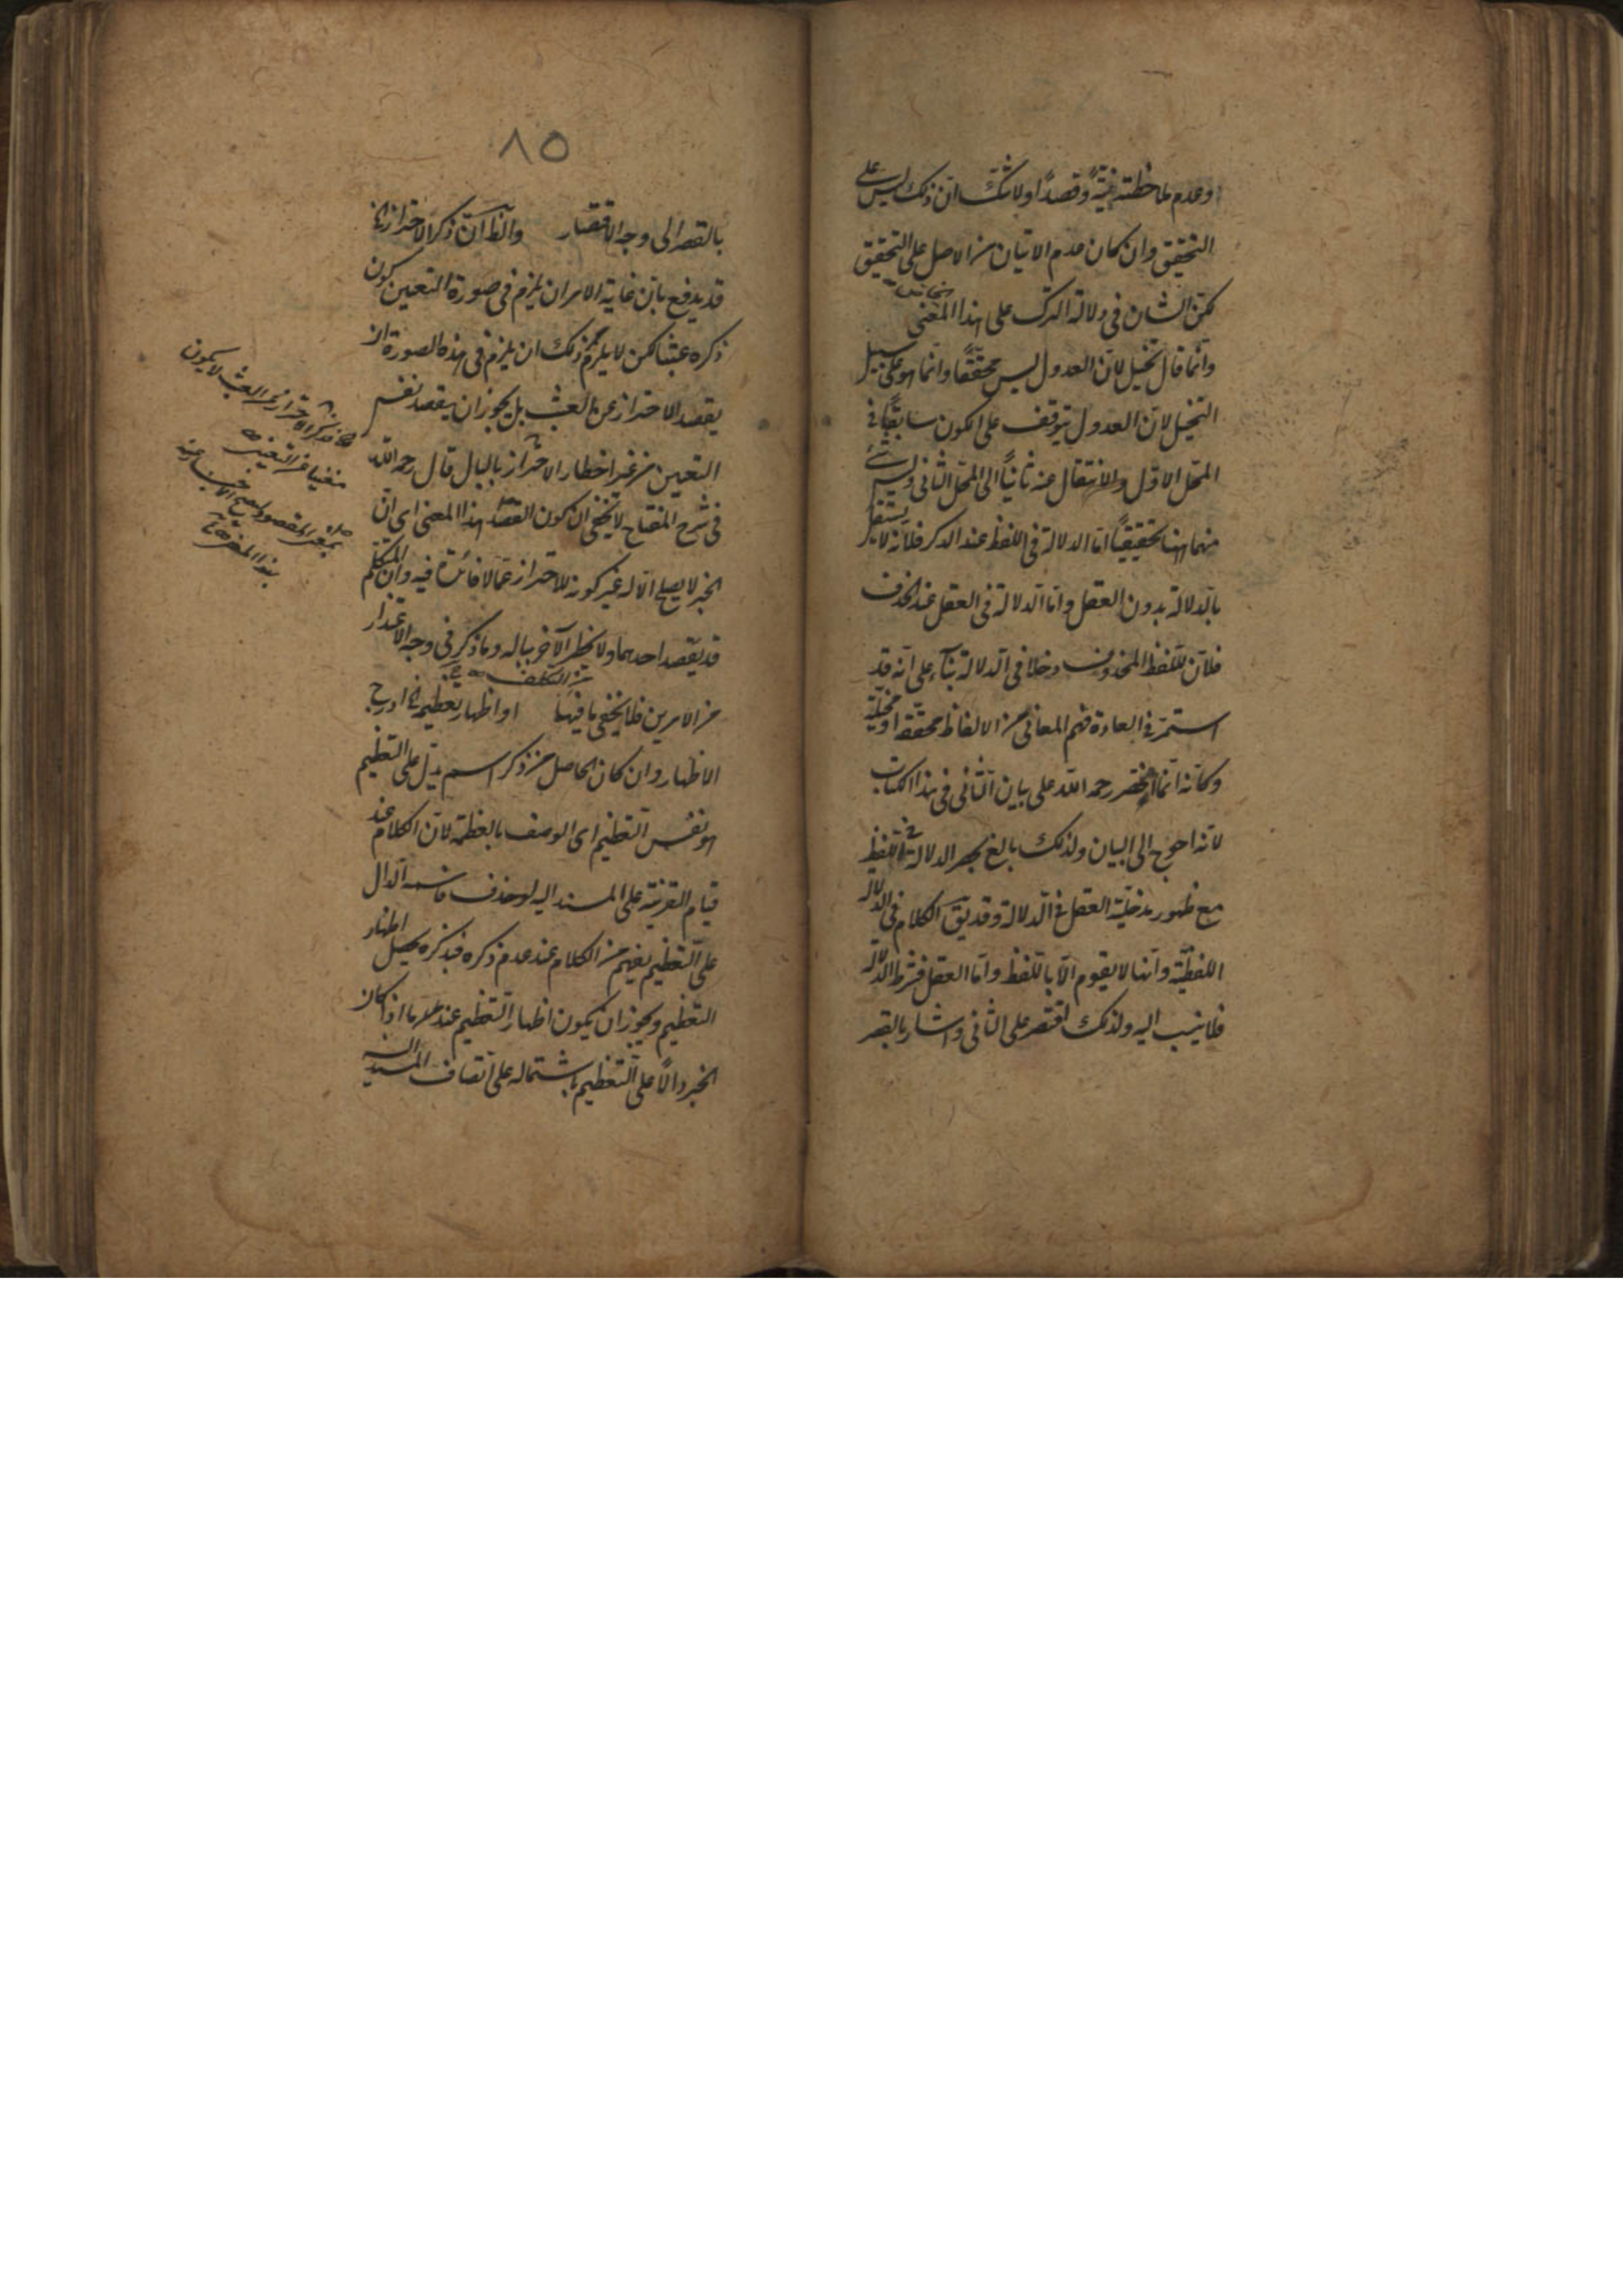 وعدم ملاحظته نيّةً وقصدًا ولا شك انّ ذلك ليس على
التحقيق وان كان عدم الاتيان من الاصل على التحقيق
لكنّ الشان في دلالة الترك على هذا المعنى
وانّما قال تخييل لانّ العدول ليس محقّقًا وانّما هو على سبيل
التخييل لانّ العدول يتوقف على الكون سابقًا في
المحل الاوّل والانتقال عنه ثانيًا الى المحل الثاني وليس شئ
منهما ههنا تحقيقيًا امّا الدلالة في اللفظ عند الذكر فلانّه لا يستقلّ
بالدلالة بدون العقل وامّا الدلالة في العقل عند الحذف
فلانّ للّفظ المحذوف دخلا في الدلالة بناءً على انّه قد
استمرّ في العادة فهم المعاني من الالفاظ محقّقة او مخيّلة
وكانّه انّما اقتصر رحمه اللّه على بيان الثاني في هذا الكتاب
لانّه احوج الى البيان ولذلك بالغ بحصر الدلالة في اللفظ
مع ظهور مدخليّة العقل في الدلالة وقد يقّ الكلام في الدلالة
اللفظيّة وانّها لا يقوم الّا باللفظ وامّا العقل فشرط الدلالة
فلا ينسب اليه ولذلك اقتصر على الثاني واشار بالقصر
٨٥
بالقصر الى وجه الاقتصار والظ انّ ذكر الاحتراز الخ
قد يدفع بانّ غاية الامر ان يلزم في صورة التعيين كون
ذكره عبثا لكن لا يلزم من ذلك ان يلزم في هذه الصورة ان
يقصد الاحتراز عن العبث بل يجوز ان يقصد نفس
التعيين من غير اخطار الاحتراز بالبال قال رحمه اللّه
في شرح المفتاح لا يخفى ان كون القصد هذا المعنى اى انّ
الخبر لا يصلح الّا له غير كونه للاحتراز عمّا لا فائدة فيه وانّ المتكلّم
قد يقصد احدهما ولا يخطر الآخر بباله وما ذكر في وجه الاعتذار
من التكلف
من الامرين فلا يخفى ما فيهما او اظهار تعظيمه الخ ادرج
الاظهار وان كان الحاصل من ذكر اسم يدلّ على التعظيم
هو نفس التعظيم اى الوصف بالعظمة لانّ الكلام عند
قيام القرينة على المسند اليه لو حذف اسمه الدال
على التعظيم يفهم من الكلام عند عدم ذكره فبذكره يحصل اظهار
التعظيم ويجوز ان يكون اظهار التعظيم عند ما اذا كان
الخبر دالًّا على التعظيم باشتماله على اتّصاف المسند اليه
فذكر الاحتراز عن العبث لا يكون
مغنيا عن التعيين